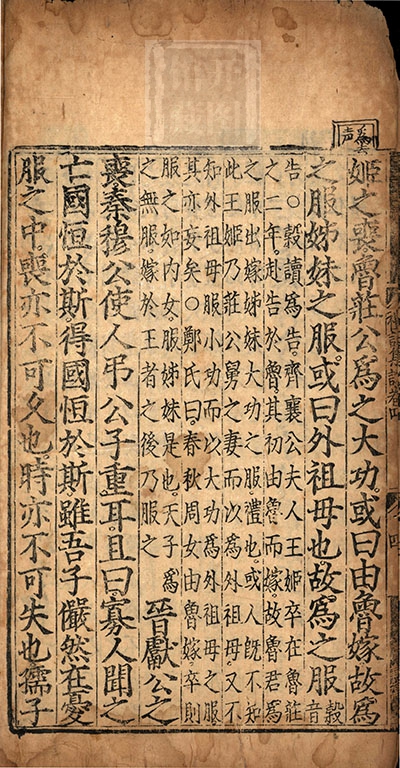 爲去声
姬之喪魯莊公爲之大功或曰由魯嫁故爲
之服姊妹之服或曰外祖母也故爲之服穀音
告○穀讀爲告齊襄公夫人王姬卒在魯莊
之二年赴告於魯其初由魯而嫁故魯君爲
之服出嫁姊妹大功之服禮也或人旣不知
此王姬乃莊公舅之妻而以爲外祖母又不
知外祖母服小功而以大功爲外祖母之服
其亦妄矣○鄭氏曰春秋周女由魯嫁卒則
服之如内女服姊妹是也天子爲
之無服嫁於王者之後乃服之
晉獻公之
喪秦穆公使人弔公子重耳且曰寡人聞之
亡國恒於斯得國恒於斯雖吾子儼然在憂
服之中喪亦不可久也時亦不可失也孺子